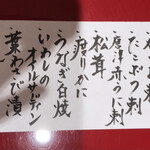 たこぶつ刺
唐津赤うに刺
松茸
渡りかに
うなぎ白焼
いわしの
オイルサーディン
葉わさび漬